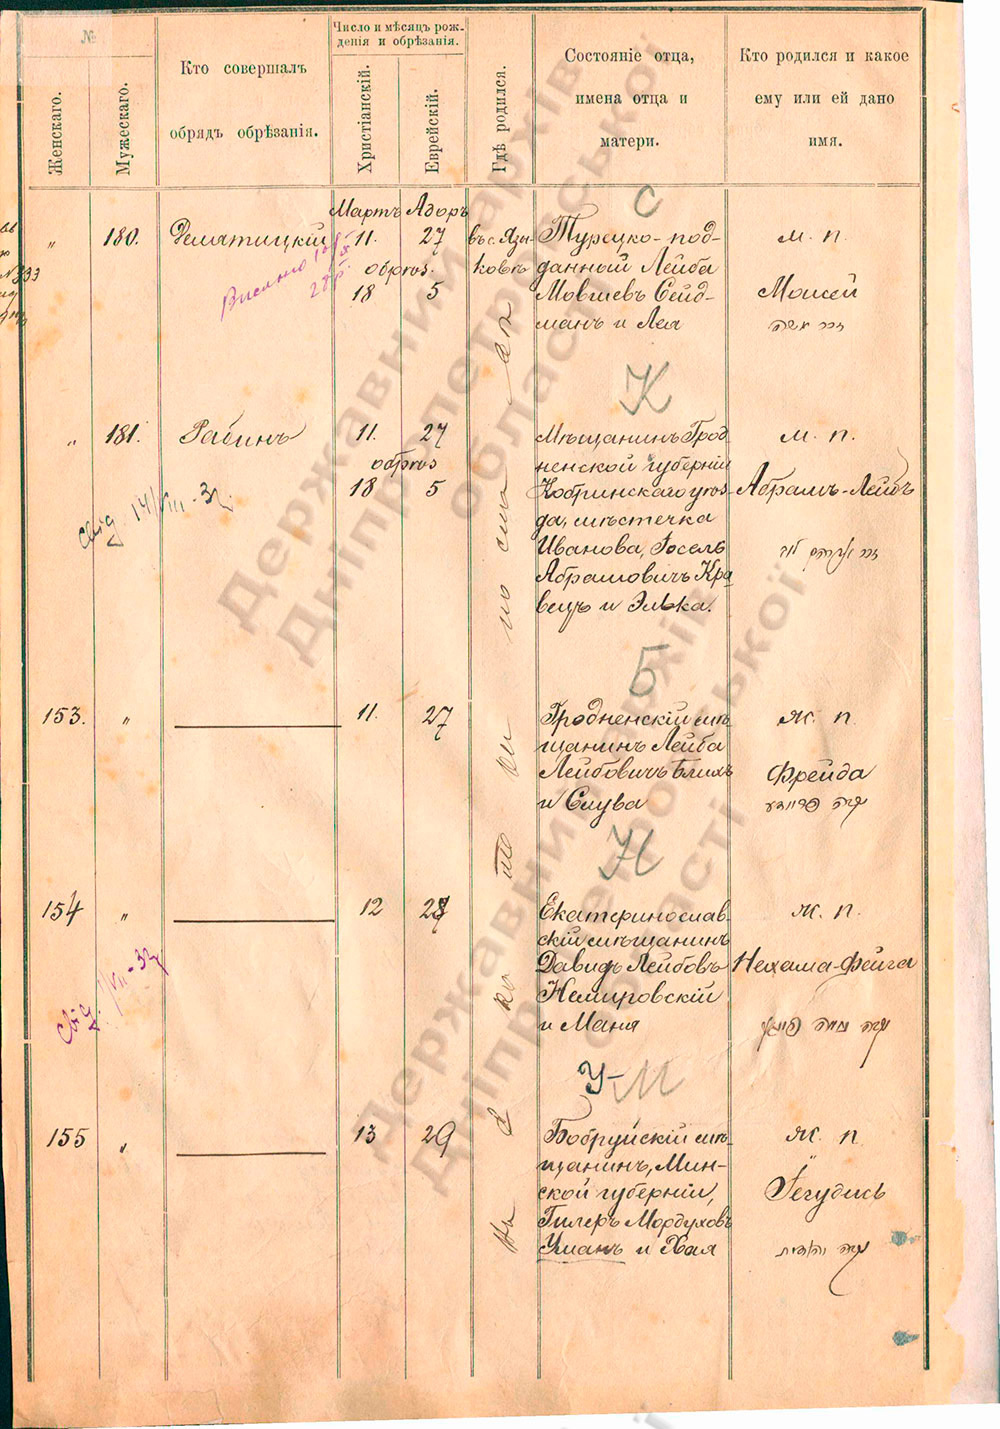 №
Женскаго.
Мужескаго.
Кто совершалъ
обрядъ обрѣзанія.
Число и мѣсяцъ рож-
денія и обрѣзанія.
Христіанскій.
Еврейскій.
Гдѣ родился.
Состояніе отца,
имена отца и
матери.
Кто родился и какое
ему или ей дано
имя.
Мартъ Адоръ
С
„ 180. 11. 27
въ с. Язы-
ковѣ
Турецко-под-
данный Лейба
Мовшевъ Сейд-
манъ и Лея
м. п.
Моисей
обрѣз.
18 5
К
„ 181. Рабинъ 11. 27
обрѣз
18 5
Мѣщанинъ Грод
ненской губерніи
Кобринскаго уѣз-
да, мѣстечка
Иванова, Іосель
Абрамовичъ Кра
вецъ и Элька.
м. п.
Абрамъ-Лейбъ
Б
153. „ 11. 27
Гродненскій мѣ-
щанинъ Лейба
Лейбовичъ Блихъ
и Слува
ж. п.
Фрейда
Н
154 „ 12 28
Екатеринослав
скій мѣщанинъ
Давидъ Лейбовъ
Немировскій
и Маня
ж. п.
Нехама-Фейга
У-М
155 „ 13 29
Бобруйскій мѣ-
щанинъ, Мин-
ской губерніи,
Гилеръ Мордуховъ
Уманъ и Хая
ж. п.
Іегудись
Державний архів
Дніпропетровської
області
Державний архів
Дніпропетровської
області